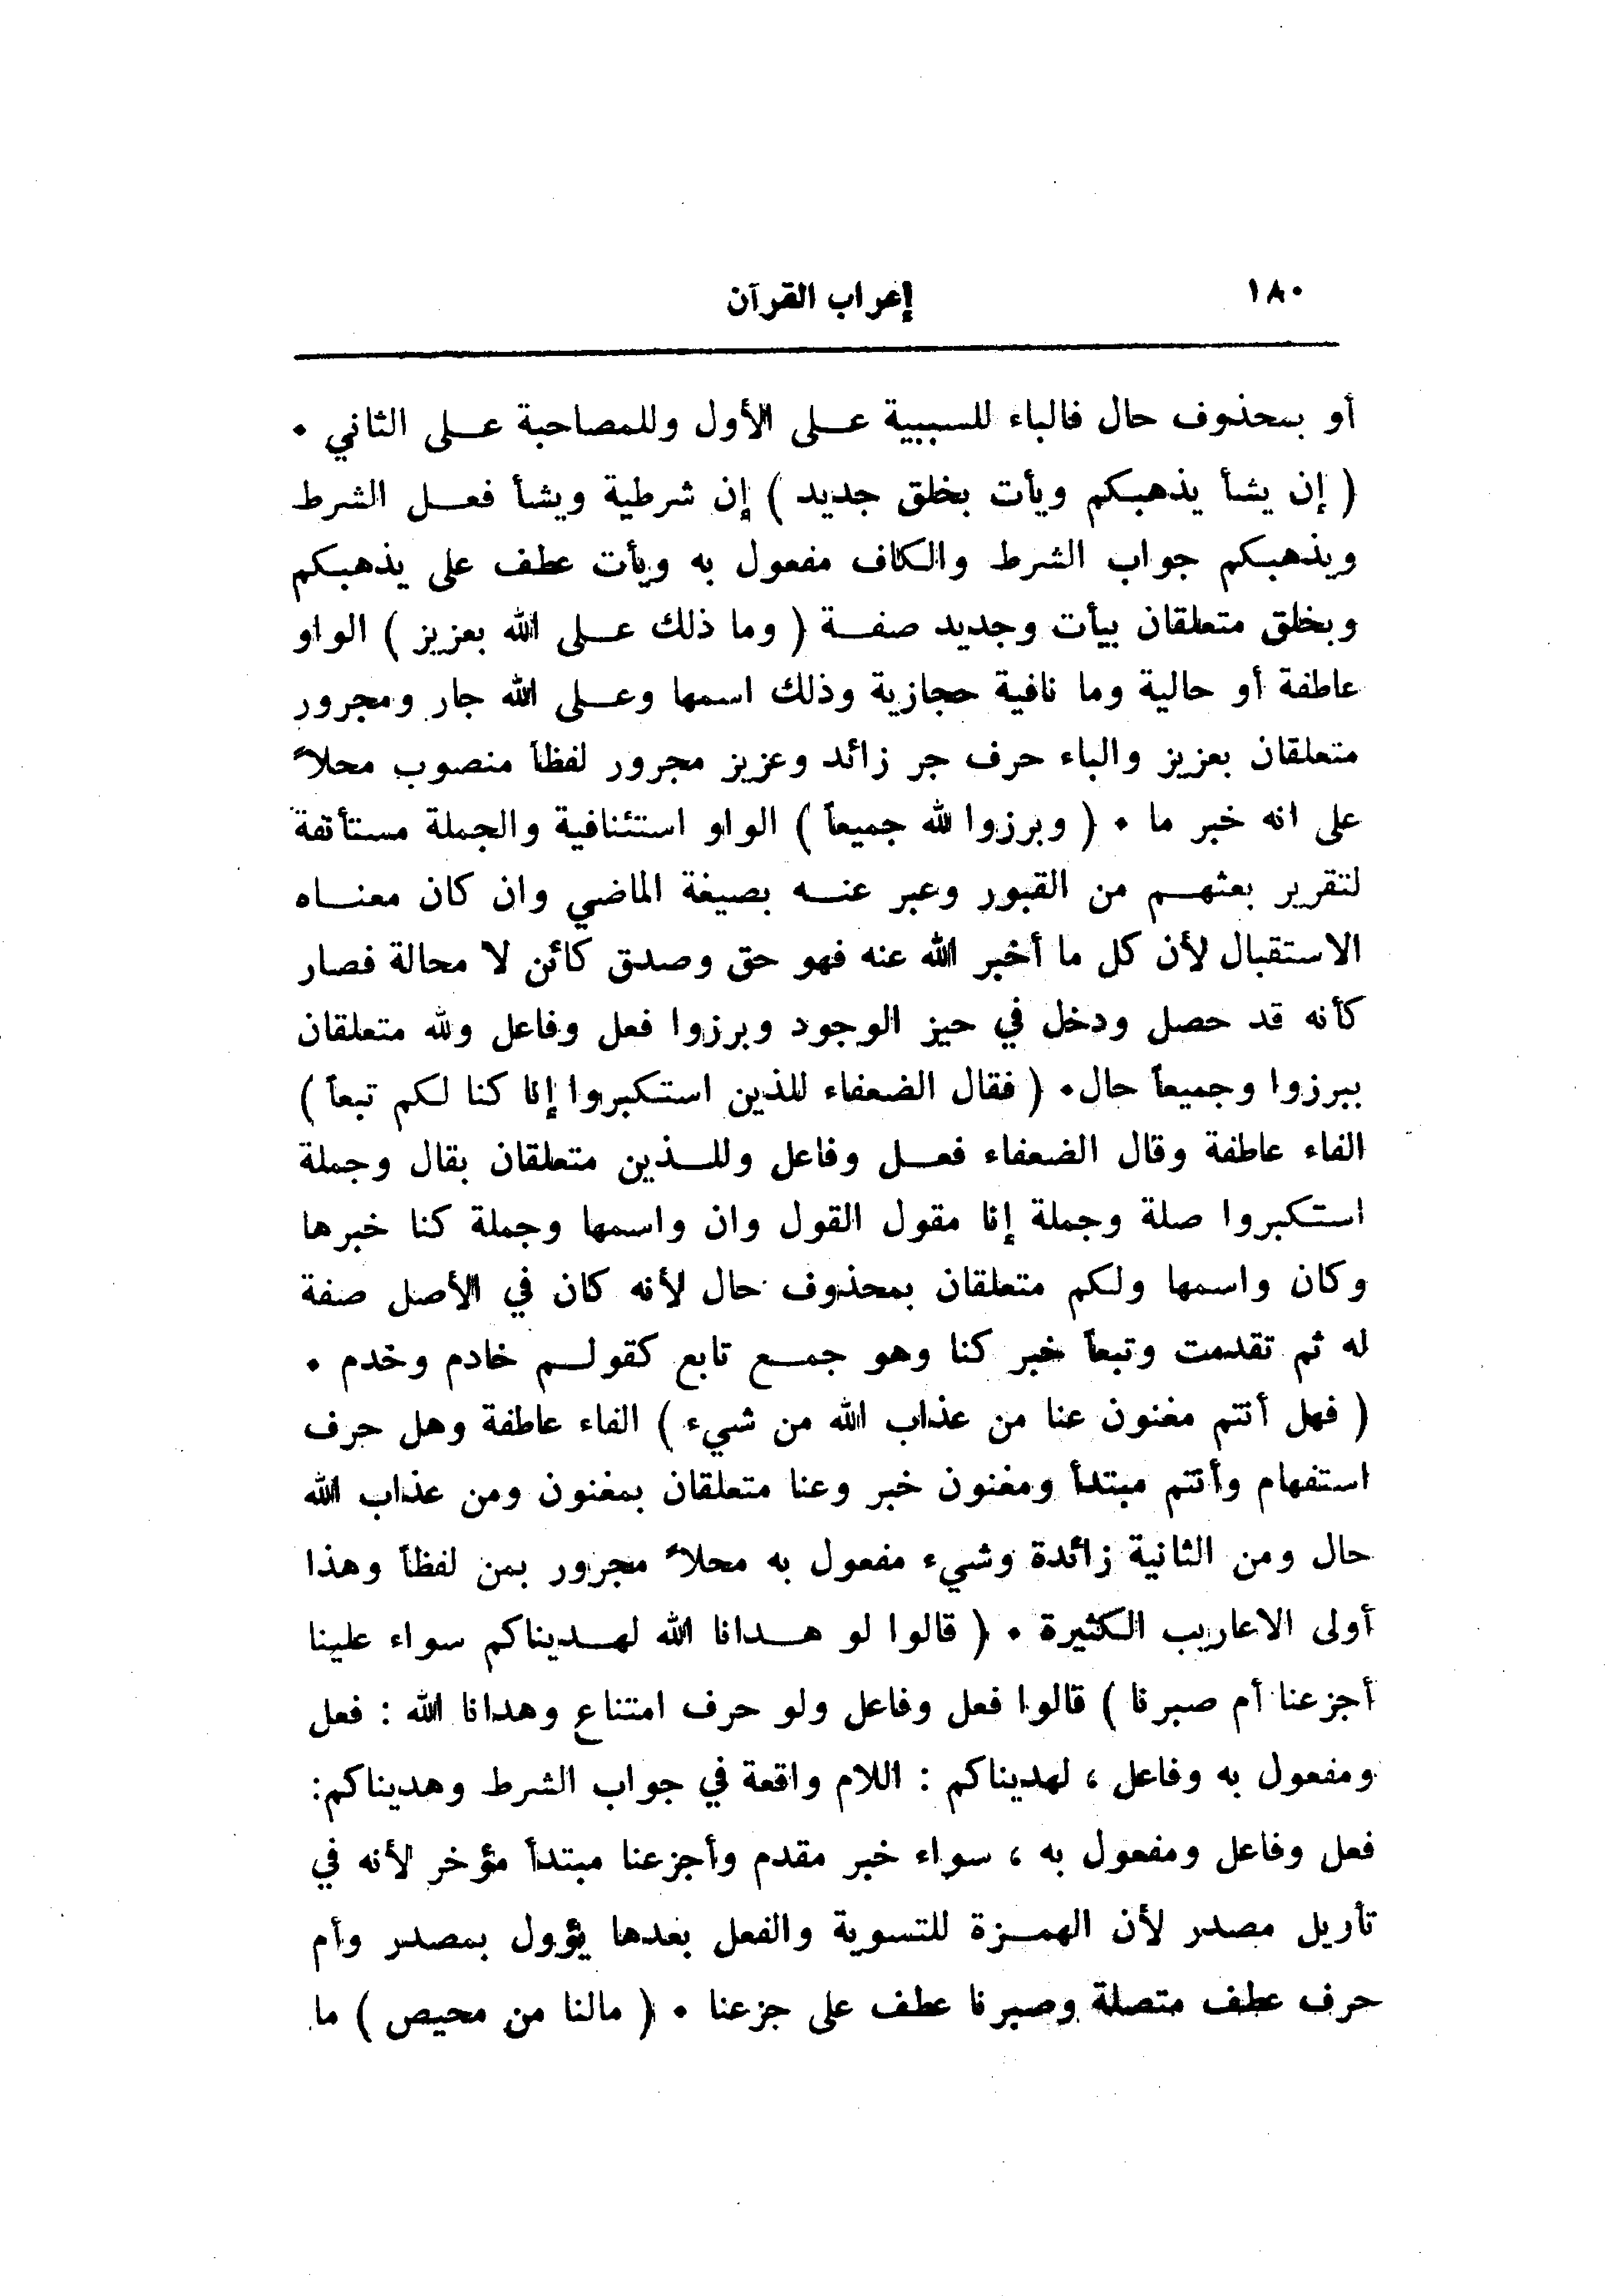 ١٨٠ إعراب القرآن
أو بمحذوف حال فالباء للسببية على الأول وللمصاحبة على الثاني .
( إن يشأ يذهبكم ويأت بخلق جديد ) إن شرطية ويشأ فعل الشرط
ويذهبكم جواب الشرط والكاف مفعول به ويأت عطف على يذهبكم
وبخلق متعلقان بيأت وجديد صفة ( وما ذلك على الله بعزيز ) الواو
عاطفة أو حالية وما نافية حجازية وذلك اسمها وعلى الله جار ومجرور
متعلقان بعزيز والباء حرف جر زائد وعزيز مجرور لفظاً منصوب محلاً
على انه خبر ما . ( وبرزوا لله جميعاً ) الواو استئنافية والجملة مستأنفة
لتقرير بعثهم من القبور وعبر عنه بصيغة الماضي وان كان معناه
الاستقبال لأن كل ما أخبر الله عنه فهو حق وصدق كائن لا محالة فصار
كأنه قد حصل ودخل في حيز الوجود وبرزوا فعل وفاعل ولله متعلقان
ببرزوا وجميعاً حال. ( فقال الضعفاء للذين استكبروا إنا كنا لكم تبعاً )
الفاء عاطفة وقال الضعفاء فعل وفاعل وللذين متعلقان بقال وجملة
استكبروا صلة وجملة إنا مقول القول وان واسمها وجملة كنا خبرها
وكان واسمها ولكم متعلقان بمحذوف حال لأنه كان في الأصل صفة
له ثم تقدمت وتبعاً خبر كنا وهو جمع تابع كقولهم خادم وخدم .
( فهل أنتم مغنون عنا من عذاب الله من شيء ) الفاء عاطفة وهل حرف
استفهام وأنتم مبتدأ ومغنون خبر وعنا متعلقان بمغنون ومن عذاب الله
حال ومن الثانية زائدة وشيء مفعول به محلاً مجرور بمن لفظاً وهذا
أولى الاعاريب الكثيرة . ( قالوا لو هدانا الله لهديناكم سواء علينا
أجزعنا أم صبرنا ) قالوا فعل وفاعل ولو حرف امتناع وهدانا الله : فعل
ومفعول به وفاعل ، لهديناكم : اللام واقعة في جواب الشرط وهديناكم:
فعل وفاعل ومفعول به ، سواء خبر مقدم وأجزعنا مبتدأ مؤخر لأنه في
تأريل مصدر لأن الهمزة للتسوية والفعل بعدها يؤول بمصدر وأم
حرف عطف متصلة وصبرنا عطف على جزعنا . ( مالنا من محيص ) ما